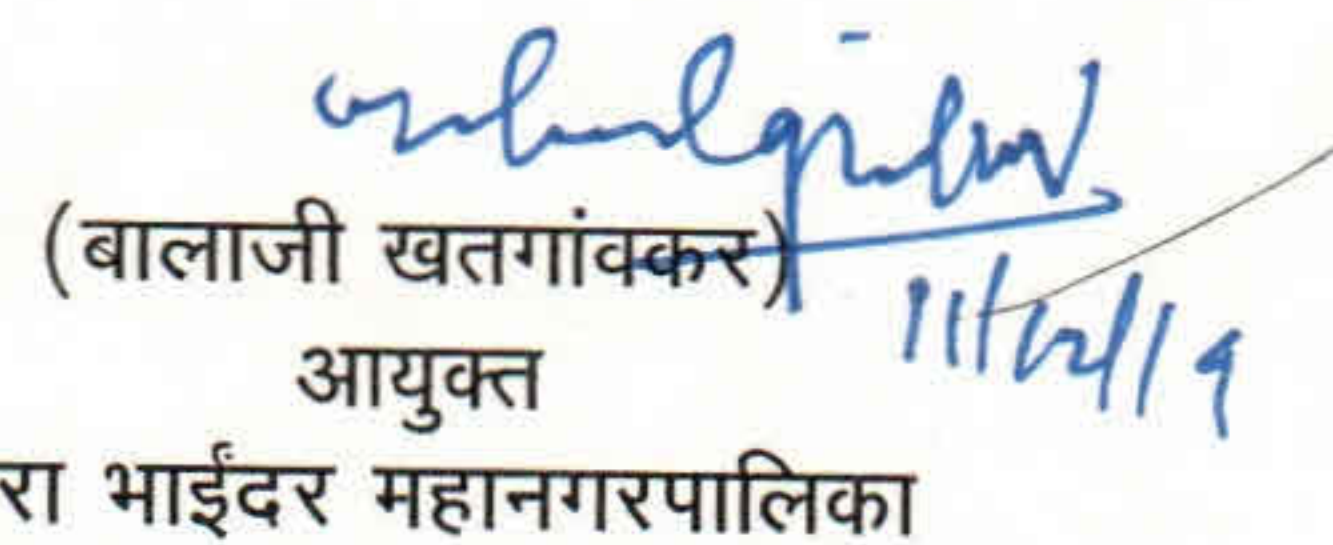 (बालाजी खतगांवकर)
11/12/19
आयुक्त
रा भाईंदर महानगरपालिका